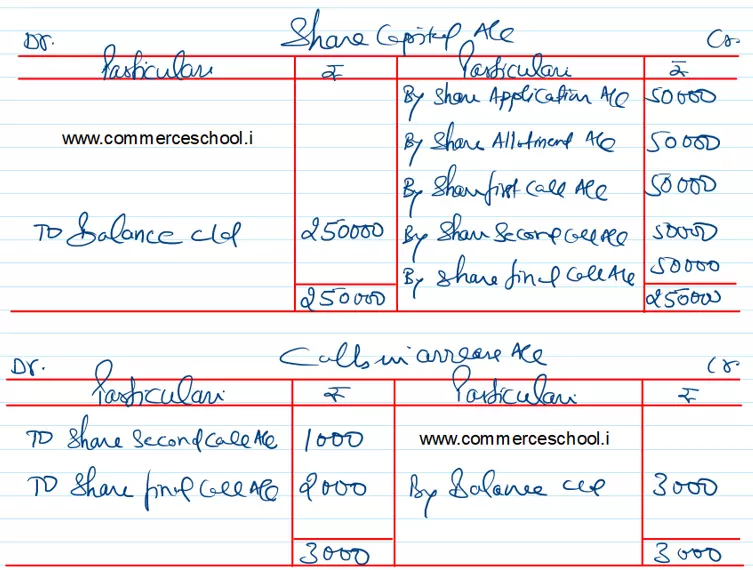 Dr. Share Capital A/c Cr.
Particulars ₹ Particulars ₹
By Share Application A/c 50000
www.commerceschool.i
By Share Allotment A/c 50000
By Share first Call A/c 50000
To Balance c/d 250000 By Share Second Call A/c 50000
By Share final Call A/c 50000
250000 250000
Dr. Calls in arrears A/c Cr.
Particulars ₹ Particulars ₹
To Share Second Call A/c 1000 www.commerceschool.i
To Share final Call A/c 2000 By Balance c/d 3000
3000 3000